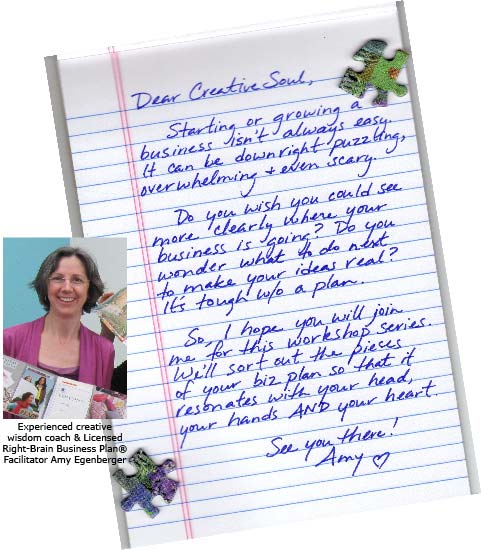 Dear Creative Soul,
Starting or growing a
business isn't always easy.
It can be downright puzzling,
overwhelming + even scary.
Do you wish you could see
more clearly where your
business is going? Do you
wonder what to do next
to make your ideas real?
It's tough w/o a plan.
So, I hope you will join
me for this workshop series.
We'll sort out the pieces
of your biz plan so that it
resonates with your head,
your hands AND your heart.
See you there!
Amy ♡
Experienced creative
wisdom coach & Licensed
Right-Brain Business Plan®
Facilitator Amy Egenberger